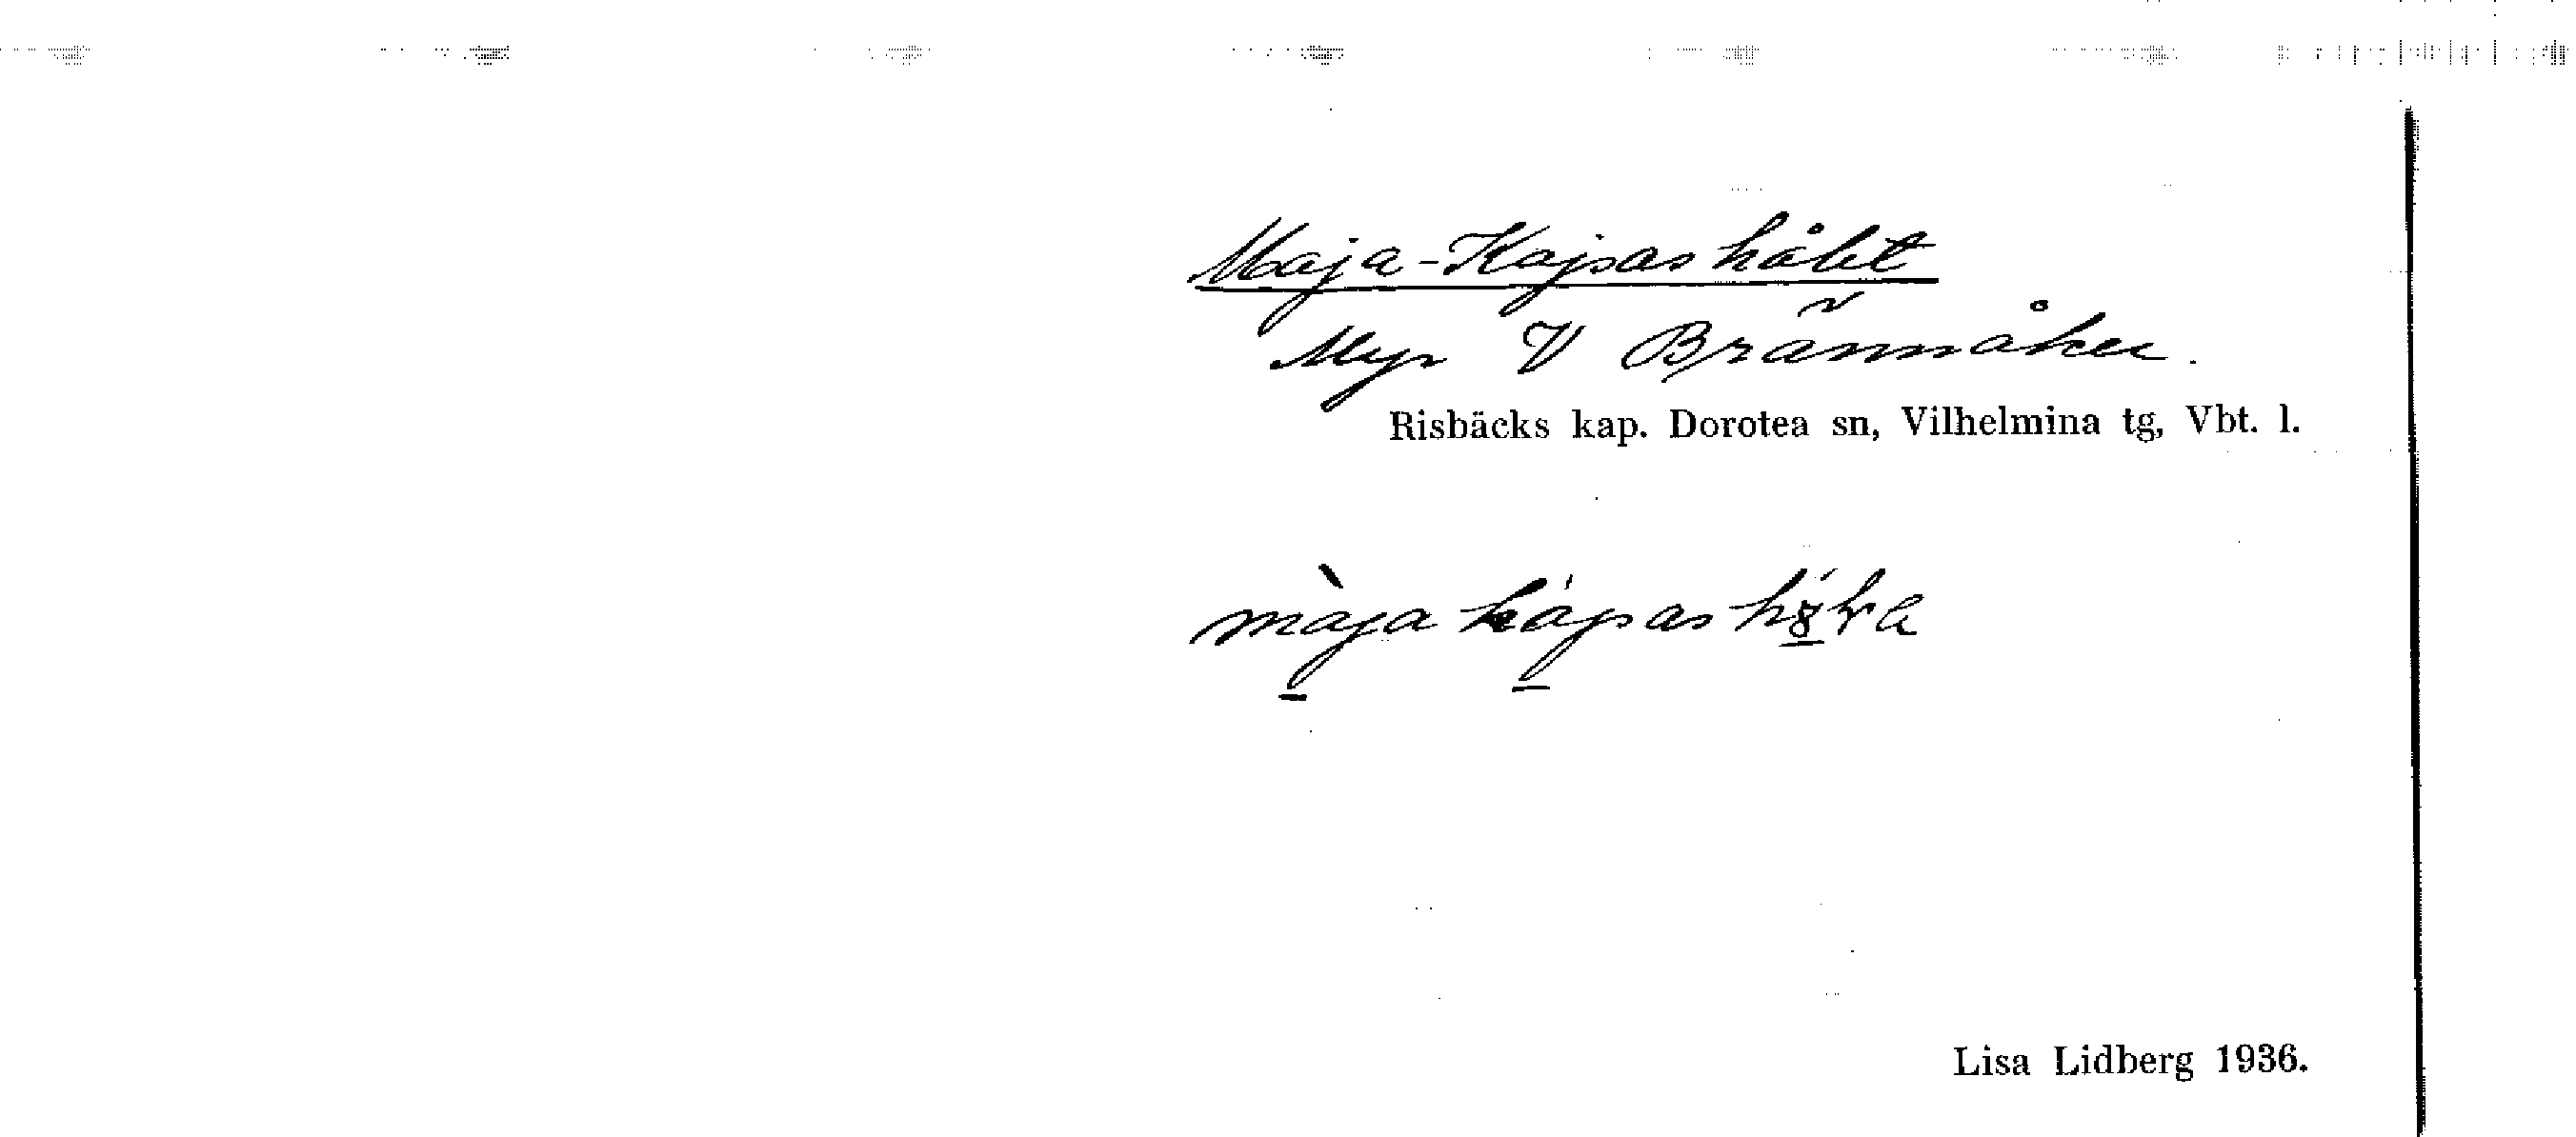 Maja-Kajsas hålet
Myr V Brännåker.
Risbäcks kap. Dorotea sn, Vilhelmina tg, Vbt. l.
màja kájsas
Lisa Lidberg 1936.